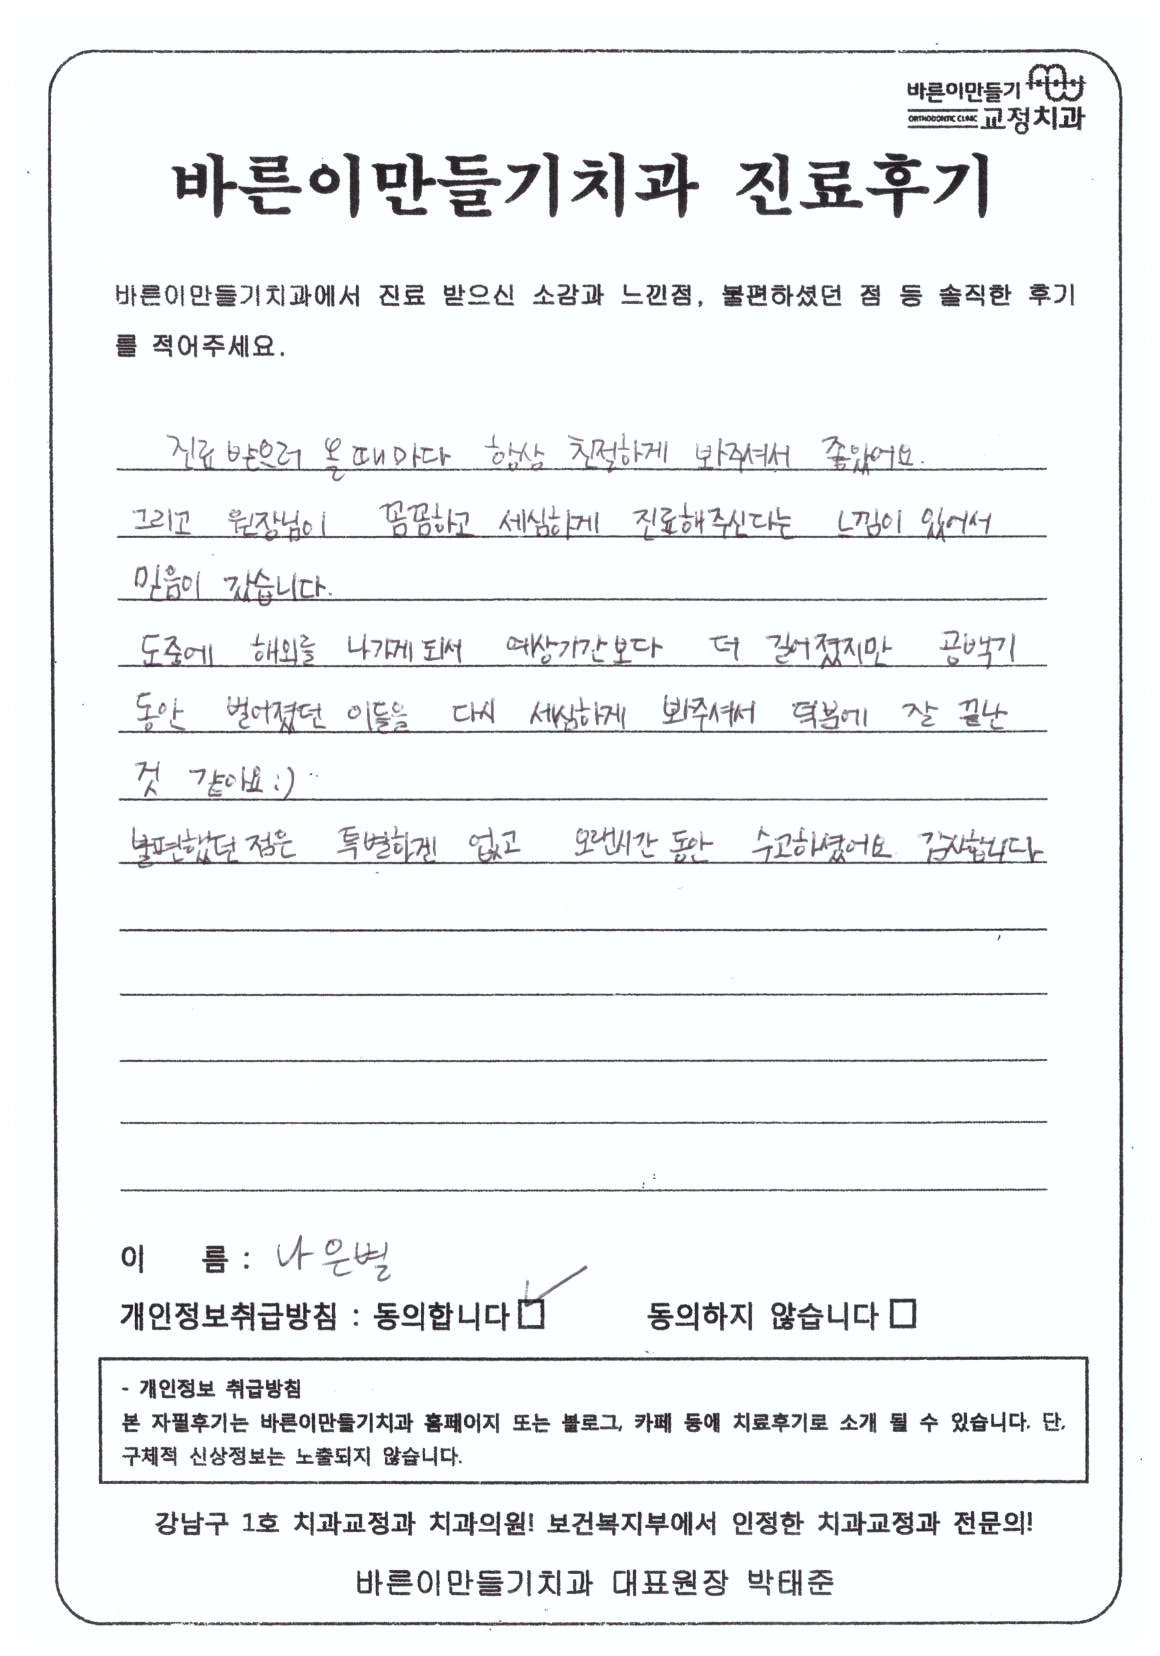 바른이만들기
ORTHODONTIC CLINIC 교정치과
바른이만들기치과 진료후기
바른이만들기치과에서 진료 받으신 소감과 느낀점, 불편하셨던 점 등 솔직한 후기
를 적어주세요.
진료 받으러 올 때마다 항상 친절하게 봐주셔서 좋았어요.
그리고 원장님이 꼼꼼하고 세심하게 진료해주신다는 느낌이 있어서
믿음이 갔습니다.
도중에 해외를 나가게 되서 예상기간보다 더 길어졌지만 공백기
동안 벌어졌던 이들을 다시 세심하게 봐주셔서 덕분에 잘 끝난
것 같아요 :)
불편했던 점은 특별하겐 없고 오랜시간 동안 수고하셨어요 감사합니다
이 름 : 나은별
개인정보취급방침 : 동의합니다 동의하지 않습니다
- 개인정보 취급방침
본 자필후기는 바른이만들기치과 홈페이지 또는 블로그, 카페 등에 치료후기로 소개 될 수 있습니다. 단,
구체적 신상정보는 노출되지 않습니다.
강남구 1호 치과교정과 치과의원! 보건복지부에서 인정한 치과교정과 전문의!
바른이만들기치과 대표원장 박태준